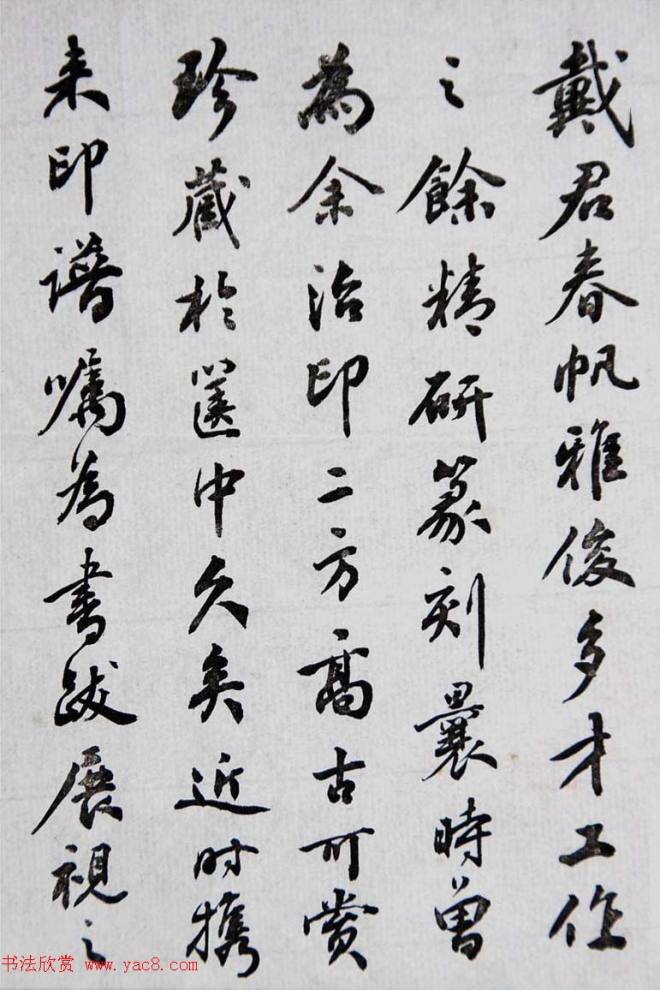 戴君春帆雅俊多才工作
之餘精研篆刻曩時曾
為余治印二方高古可賞
珍藏於篋中久矣近时携
来印谱嘱为書跋展視之
书法欣赏 www.yac8.com